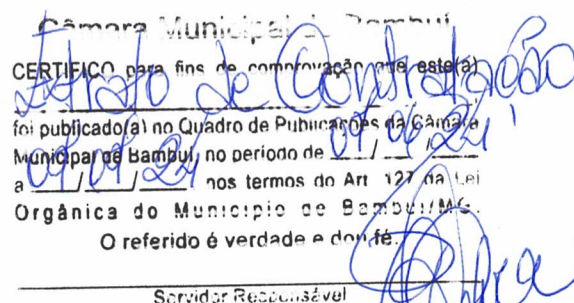 Câmara Municipal de Bambuí
CERTIFICO para fins de comprovação que este(a)
Extrato de Contratação
foi publicado(a) no Quadro de Publicações da Câmara
Municipal de Bambuí, no período de / /
a / / nos termos do Art. 127 da Lei
Orgânica do Município de Bambuí/MG.
O referido é verdade e dou fé.
Servidor Responsável